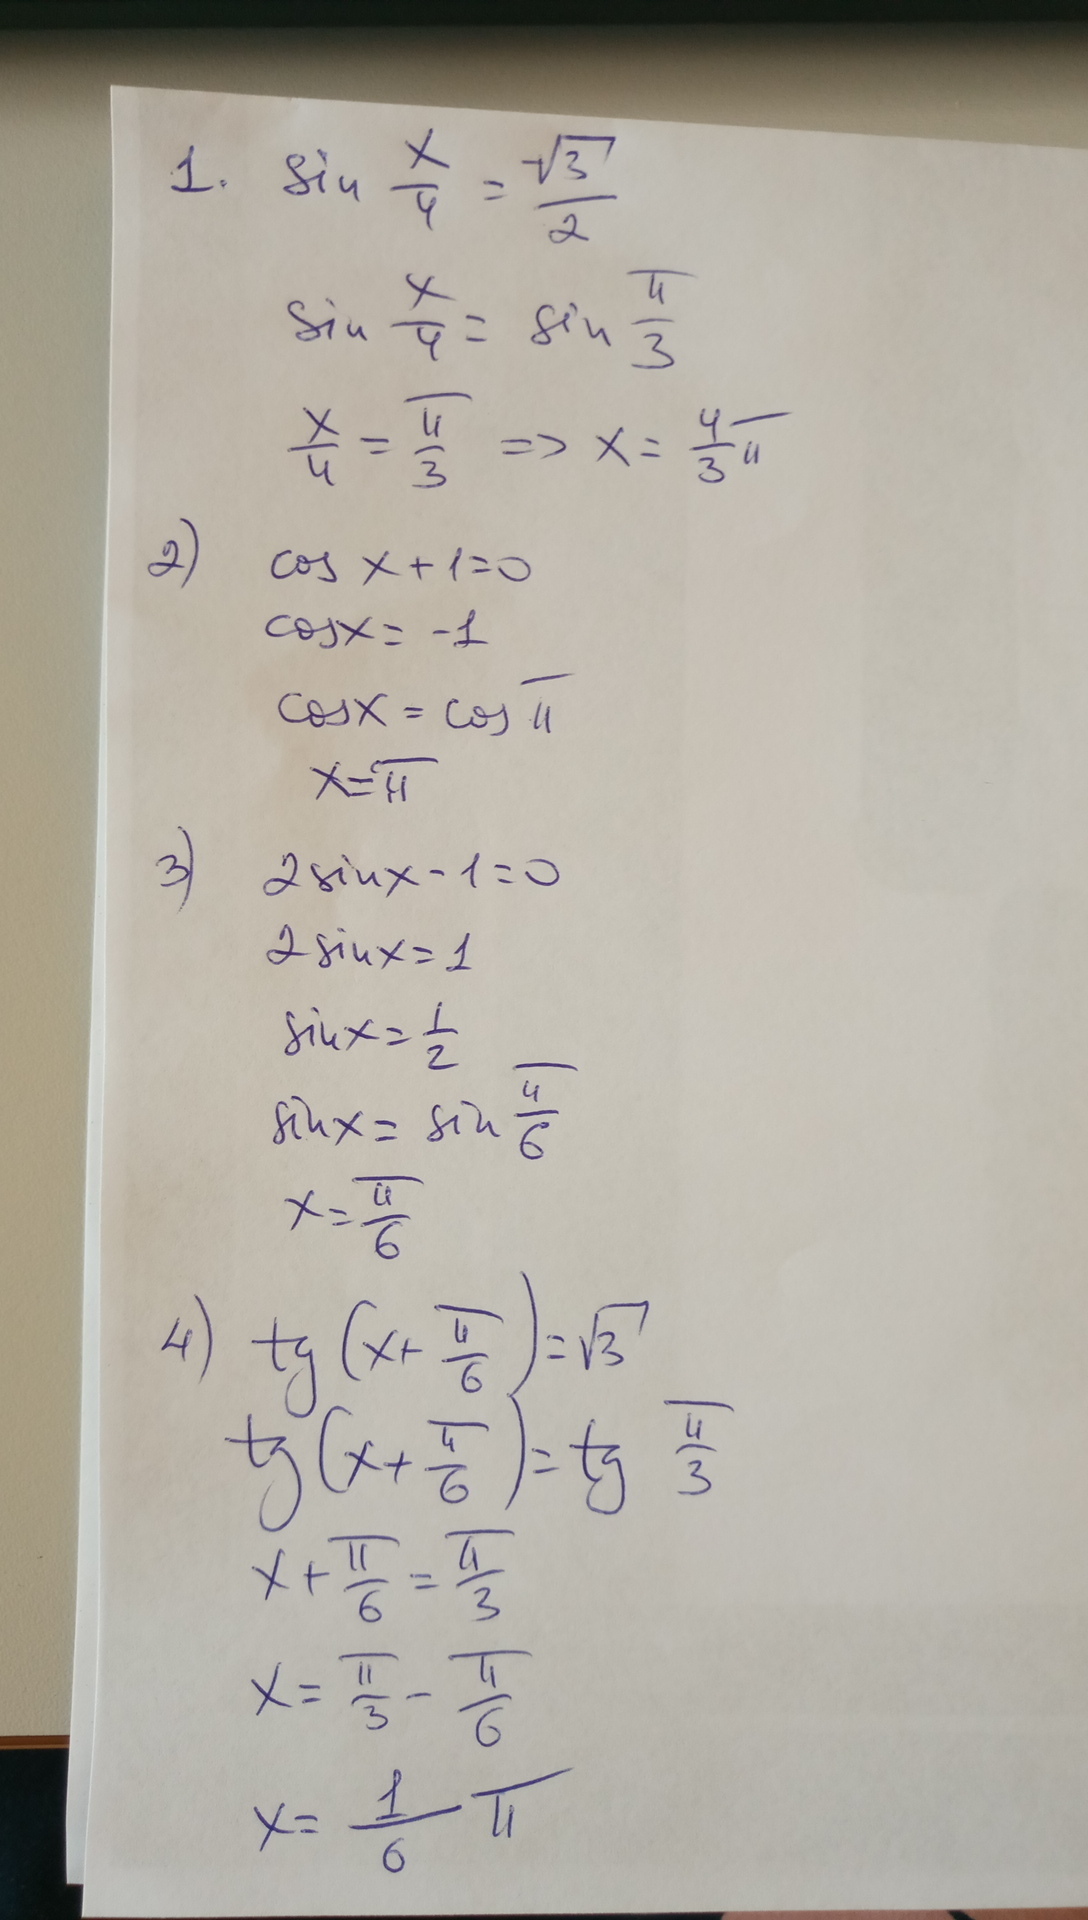 1. sin x/4 = √3/2
sin x/4 = sin π/3
x/4 = π/3 => x = 4/3 π
2) cos x+1=0
cosx = -1
cosx = cos π
x=π
3) 2sinx-1=0
2sinx=1
sinx=1/2
sinx= sin π/6
x=π/6
4) tg(x+ π/6)=√3
tg(x+ π/6)= tg π/3
x+π/6 = π/3
x= π/3 - π/6
x= 1/6 π